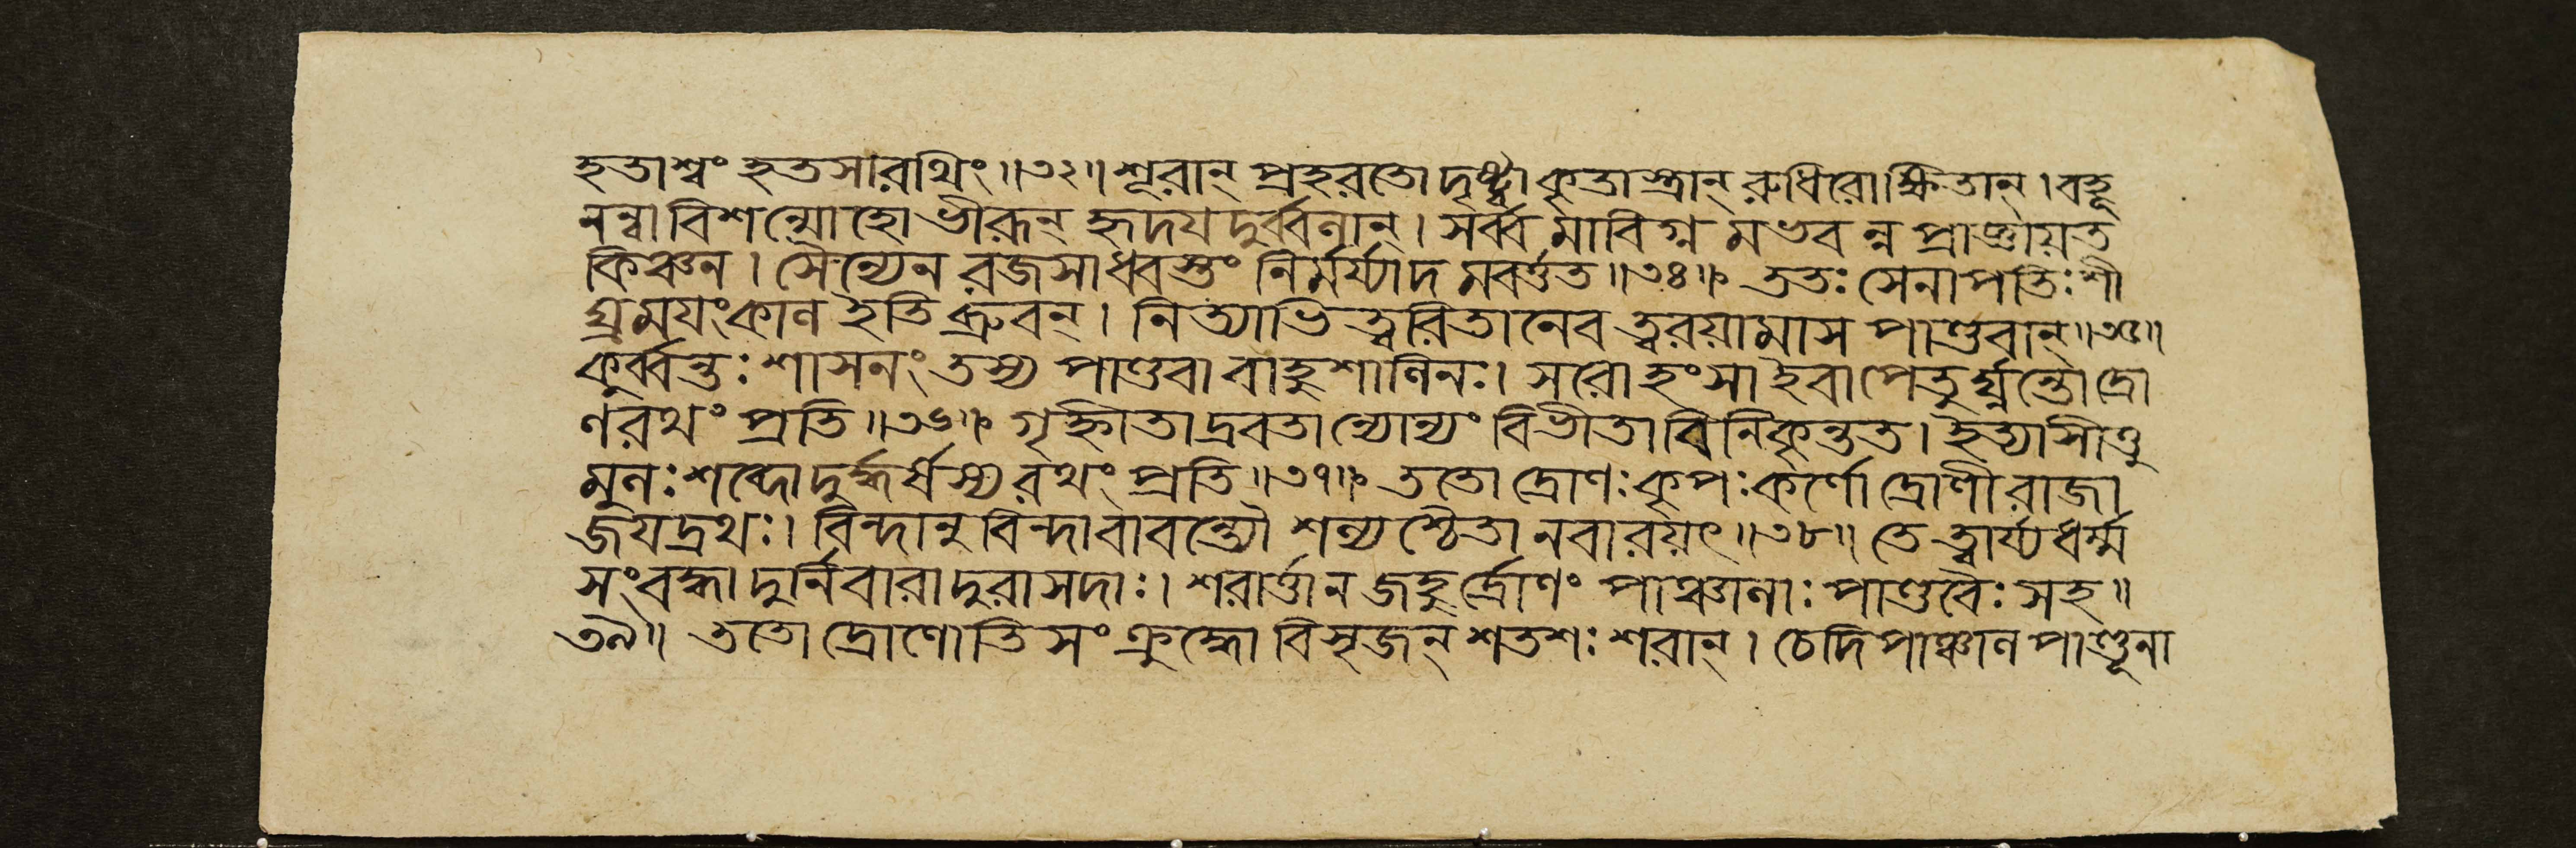 হতাশ্বং হতসারথিং॥৩২॥ শূরান্ প্রহরতো দৃষ্ট্বা কৃতাস্ত্রান্ রুধিরোক্ষিতান্। বহূ
নন্বাবিশন্মোহো ভীরূন্ হৃদয় দুর্ব্বলান্। সর্ব্বমাবিগ্নমভবন্ন প্রাজ্ঞায়ত
কিঞ্চন। সৈন্যেন রজসা ধ্বস্তং নির্মর্য্যাদমবর্ত্তত॥৩৪॥ ততঃ সেনাপতিঃ শী
ঘ্রময়ংকাল ইতি ব্রুবন্। নিত্যাভিত্বরিতানেব ত্বরয়ামাস পাণ্ডবান্॥৩৫॥
কুর্ব্বন্তঃ শাসনং তস্য পাণ্ডবা বাহুশালিনঃ। সরো হংসা ইবাপেতুর্ঘ্নন্তো দ্রো
ণরথং প্রতি॥৩৬॥ গৃহ্ণীতাদ্রবতান্যোন্যং বিভীতা বিনিকৃন্তত। ইত্যাসীত্তু
মুলঃ শব্দো দুর্দ্ধর্ষস্য রথং প্রতি॥৩৭॥ ততো দ্রোণঃ কৃপঃ কর্ণো দ্রৌণী রাজা
জয়দ্রথঃ। বিন্দানুবিন্দাবাবন্ত্যৌ শল্যশ্চৈতানবারয়ৎ॥৩৮॥ তে ত্বার্য্যধর্ম্ম
সংরব্ধা দুর্নিবারা দুরাসদাঃ। শরার্ত্তা ন জহুর্দ্রোণং পাঞ্চালাঃ পাণ্ডবৈঃ সহ॥
৩৯॥ ততো দ্রোণোতি সংক্রুদ্ধো বিসৃজন্ শতশঃ শরান্। চেদি পাঞ্চাল পাণ্ডূনা